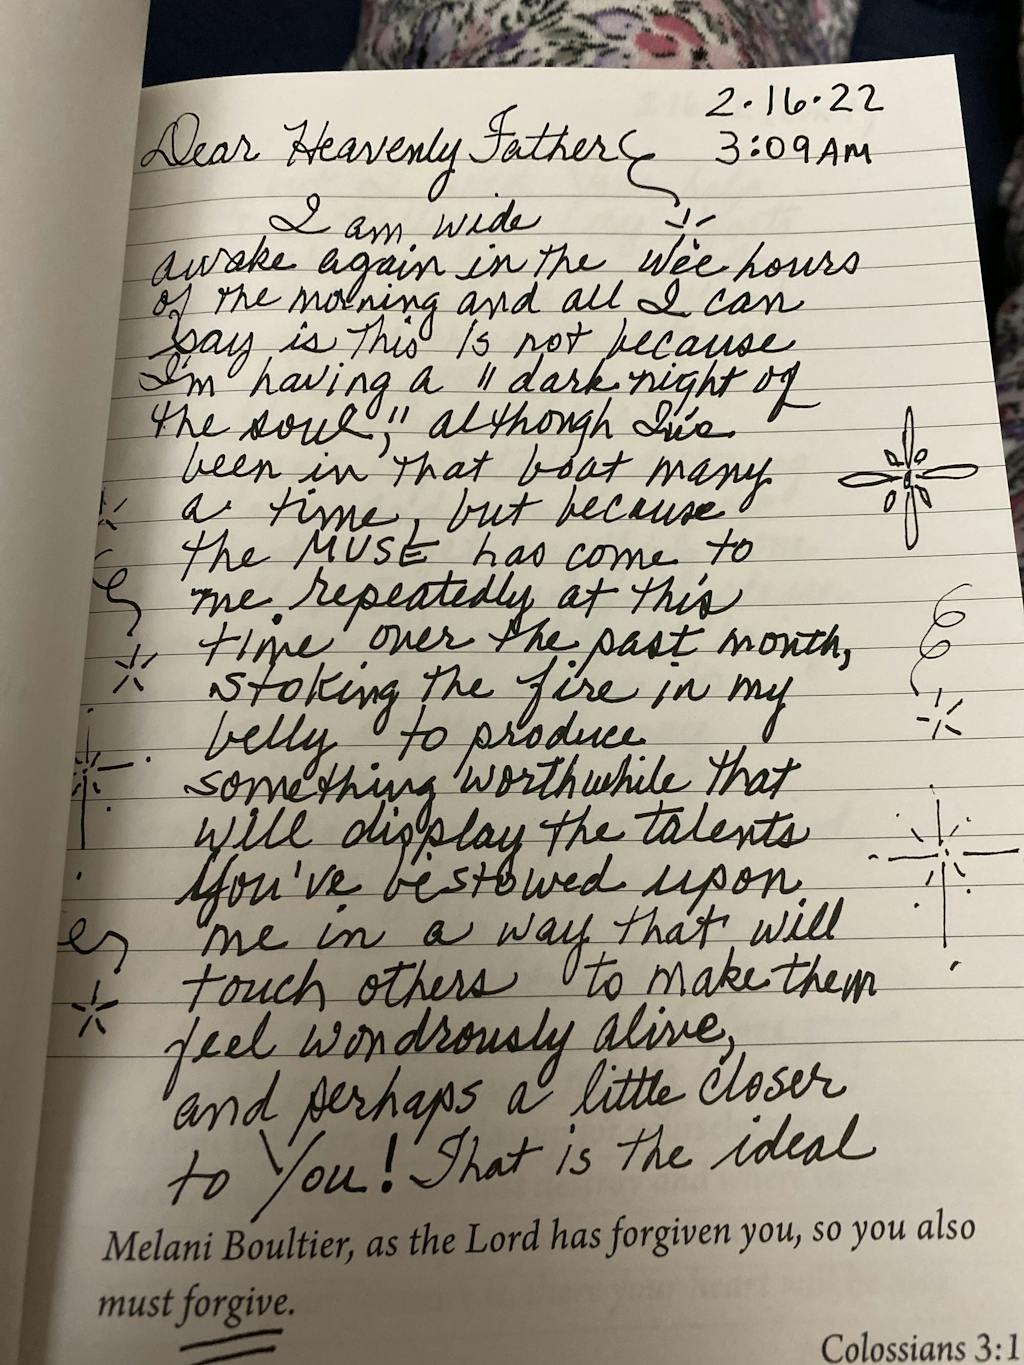 2.16.22
Dear Heavenly Father 3:09AM
I am wide
awake again in the wee hours
of the morning and all I can
say is this is not because
I'm having a "dark night of
the soul," although I've
been in that boat many
a time, but because
the MUSE has come to
me repeatedly at this
time over the past month,
stoking the fire in my
belly to produce
something worthwhile that
will display the talents
You've bestowed upon
me in a way that will
touch others to make them
feel wondrously alive,
and perhaps a little closer
to You! That is the ideal
Melani Boultier, as the Lord has forgiven you, so you also
must forgive.
Colossians 3:1